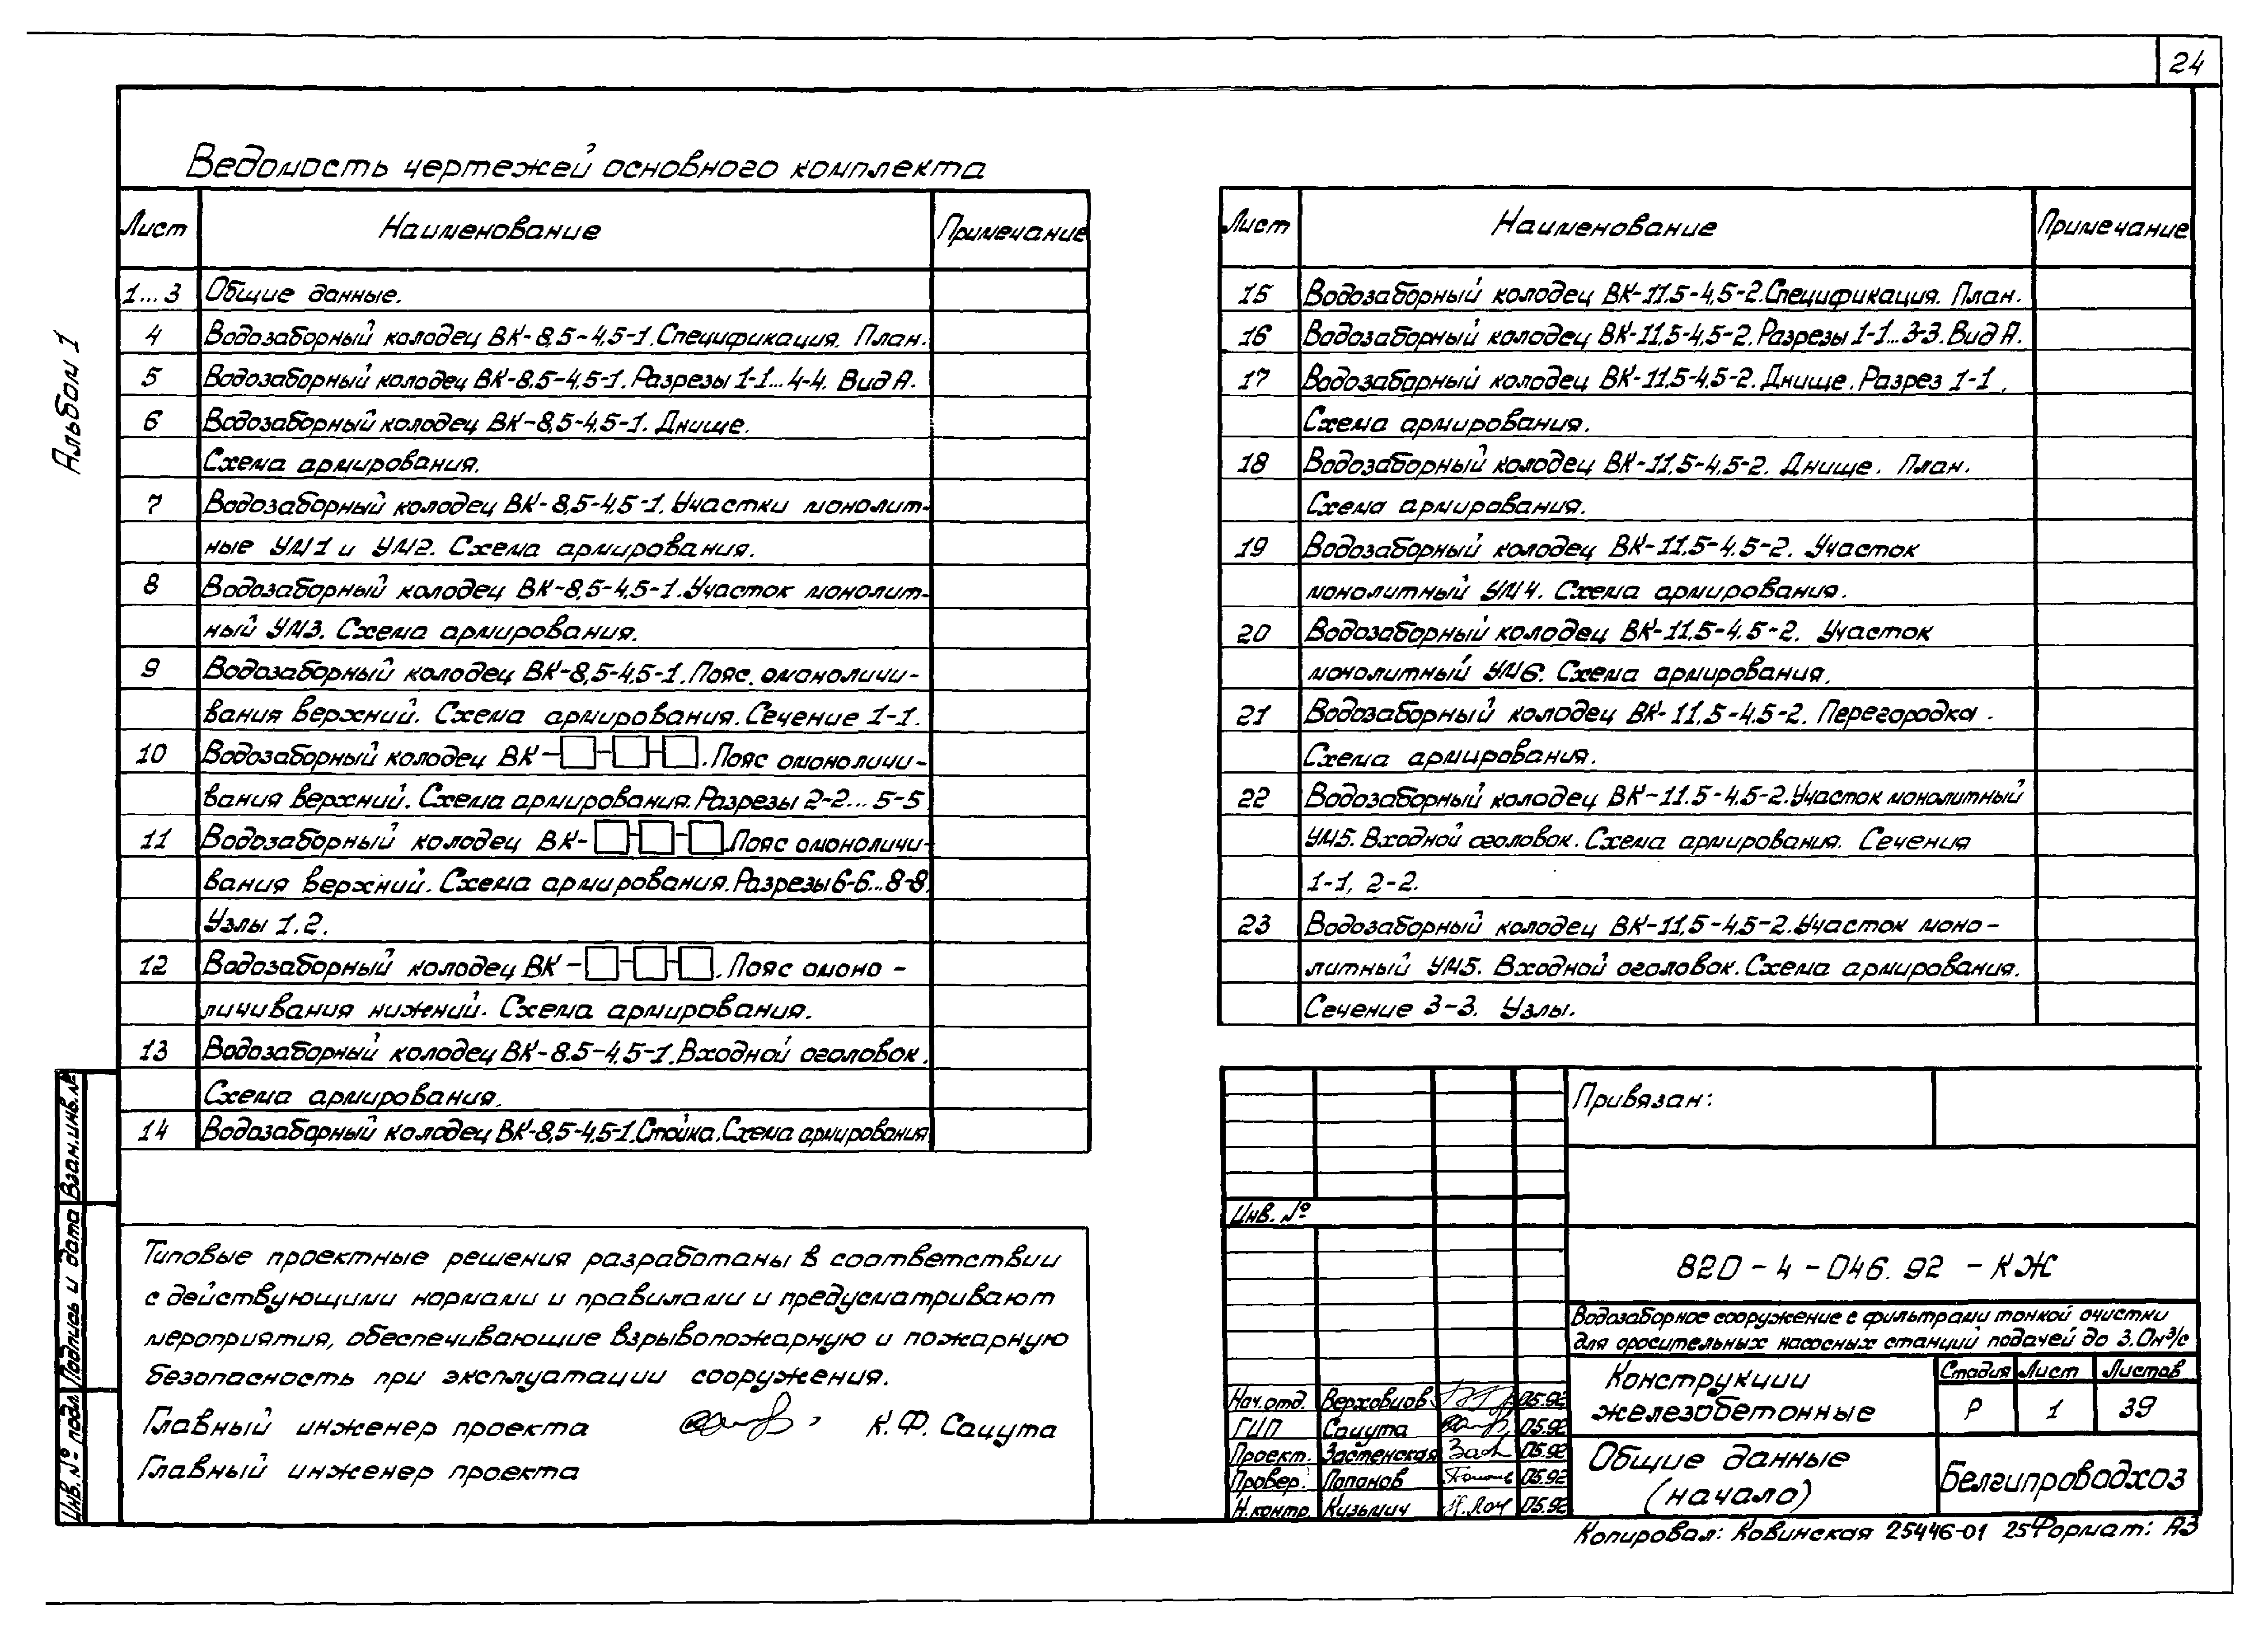 24
Альбом 1
Ведомость чертежей основного комплекта
Лист Наименование Примечание
1...3 Общие данные.
4 Водозаборный колодец ВК-8,5-4,5-1. Спецификация. План.
5 Водозаборный колодец ВК-8,5-4,5-1. Разрезы 1-1...4-4. Вид А.
6 Водозаборный колодец ВК-8,5-4,5-1. Днище.
Схема армирования.
7 Водозаборный колодец ВК-8,5-4,5-1. Участки монолит-
ные УМ1 и УМ2. Схема армирования.
8 Водозаборный колодец ВК-8,5-4,5-1. Участок монолит-
ный УМ3. Схема армирования.
9 Водозаборный колодец ВК-8,5-4,5-1. Пояс. омоноличи-
вания верхний. Схема армирования. Сечение 1-1.
10 Водозаборный колодец ВК-□-□-□. Пояс омоноличи-
вания верхний. Схема армирования. Разрезы 2-2...5-5
11 Водозаборный колодец ВК-□-□-□. Пояс омоноличи-
вания верхний. Схема армирования. Разрезы 6-6...8-8.
Узлы 1.2.
12 Водозаборный колодец ВК-□-□-□. Пояс омоно-
личивания нижний. Схема армирования.
13 Водозаборный колодец ВК-8.5-4,5-1. Входной оголовок.
Схема армирования.
14 Водозаборный колодец ВК-8,5-4,5-1. Стойка. Схема армирования.
Лист Наименование Примечание
15 Водозаборный колодец ВК-11,5-4,5-2. Спецификация. План.
16 Водозаборный колодец ВК-11,5-4,5-2. Разрезы 1-1...3-3. Вид А.
17 Водозаборный колодец ВК-11,5-4,5-2. Днище. Разрез 1-1.
Схема армирования.
18 Водозаборный колодец ВК-11,5-4,5-2. Днище. План.
Схема армирования.
19 Водозаборный колодец ВК-11,5-4,5-2. Участок
монолитный УМ4. Схема армирования.
20 Водозаборный колодец ВК-11,5-4,5-2. Участок
монолитный УМ6. Схема армирования.
21 Водозаборный колодец ВК-11,5-4,5-2. Перегородка.
Схема армирования.
22 Водозаборный колодец ВК-11.5-4,5-2. Участок монолитный
УМ5. Входной оголовок. Схема армирования. Сечения
1-1, 2-2.
23 Водозаборный колодец ВК-11,5-4,5-2. Участок моно-
литный УМ5. Входной оголовок. Схема армирования.
Сечение 3-3. Узлы.
Типовые проектные решения разработаны в соответствии
с действующими нормами и правилами и предусматривают
мероприятия, обеспечивающие взрывопожарную и пожарную
безопасность при эксплуатации сооружения.
Главный инженер проекта К.Ф. Сацута
Главный инженер проекта
Взам.инв.№
Подпись и дата
Инв. № подл.
Привязан:
Инв. №
820-4-046.92-КЖ
Водозаборное сооружение с фильтрами тонкой очистки
для оросительных насосных станций подачей до 3.0м³/с
Конструкции
железобетонные
Стадия Лист Листов
Р 1 39
Нач.отд. Верховцов 05.92
ГИП Сацута 05.92
Проект. Застенская 05.92
Провер. Попанов 05.92
Н.контр. Кузьмич 05.92
Общие данные
(начало)
Белгипроводхоз
Копировал: Ковинская 25446-01 25 Формат: А3